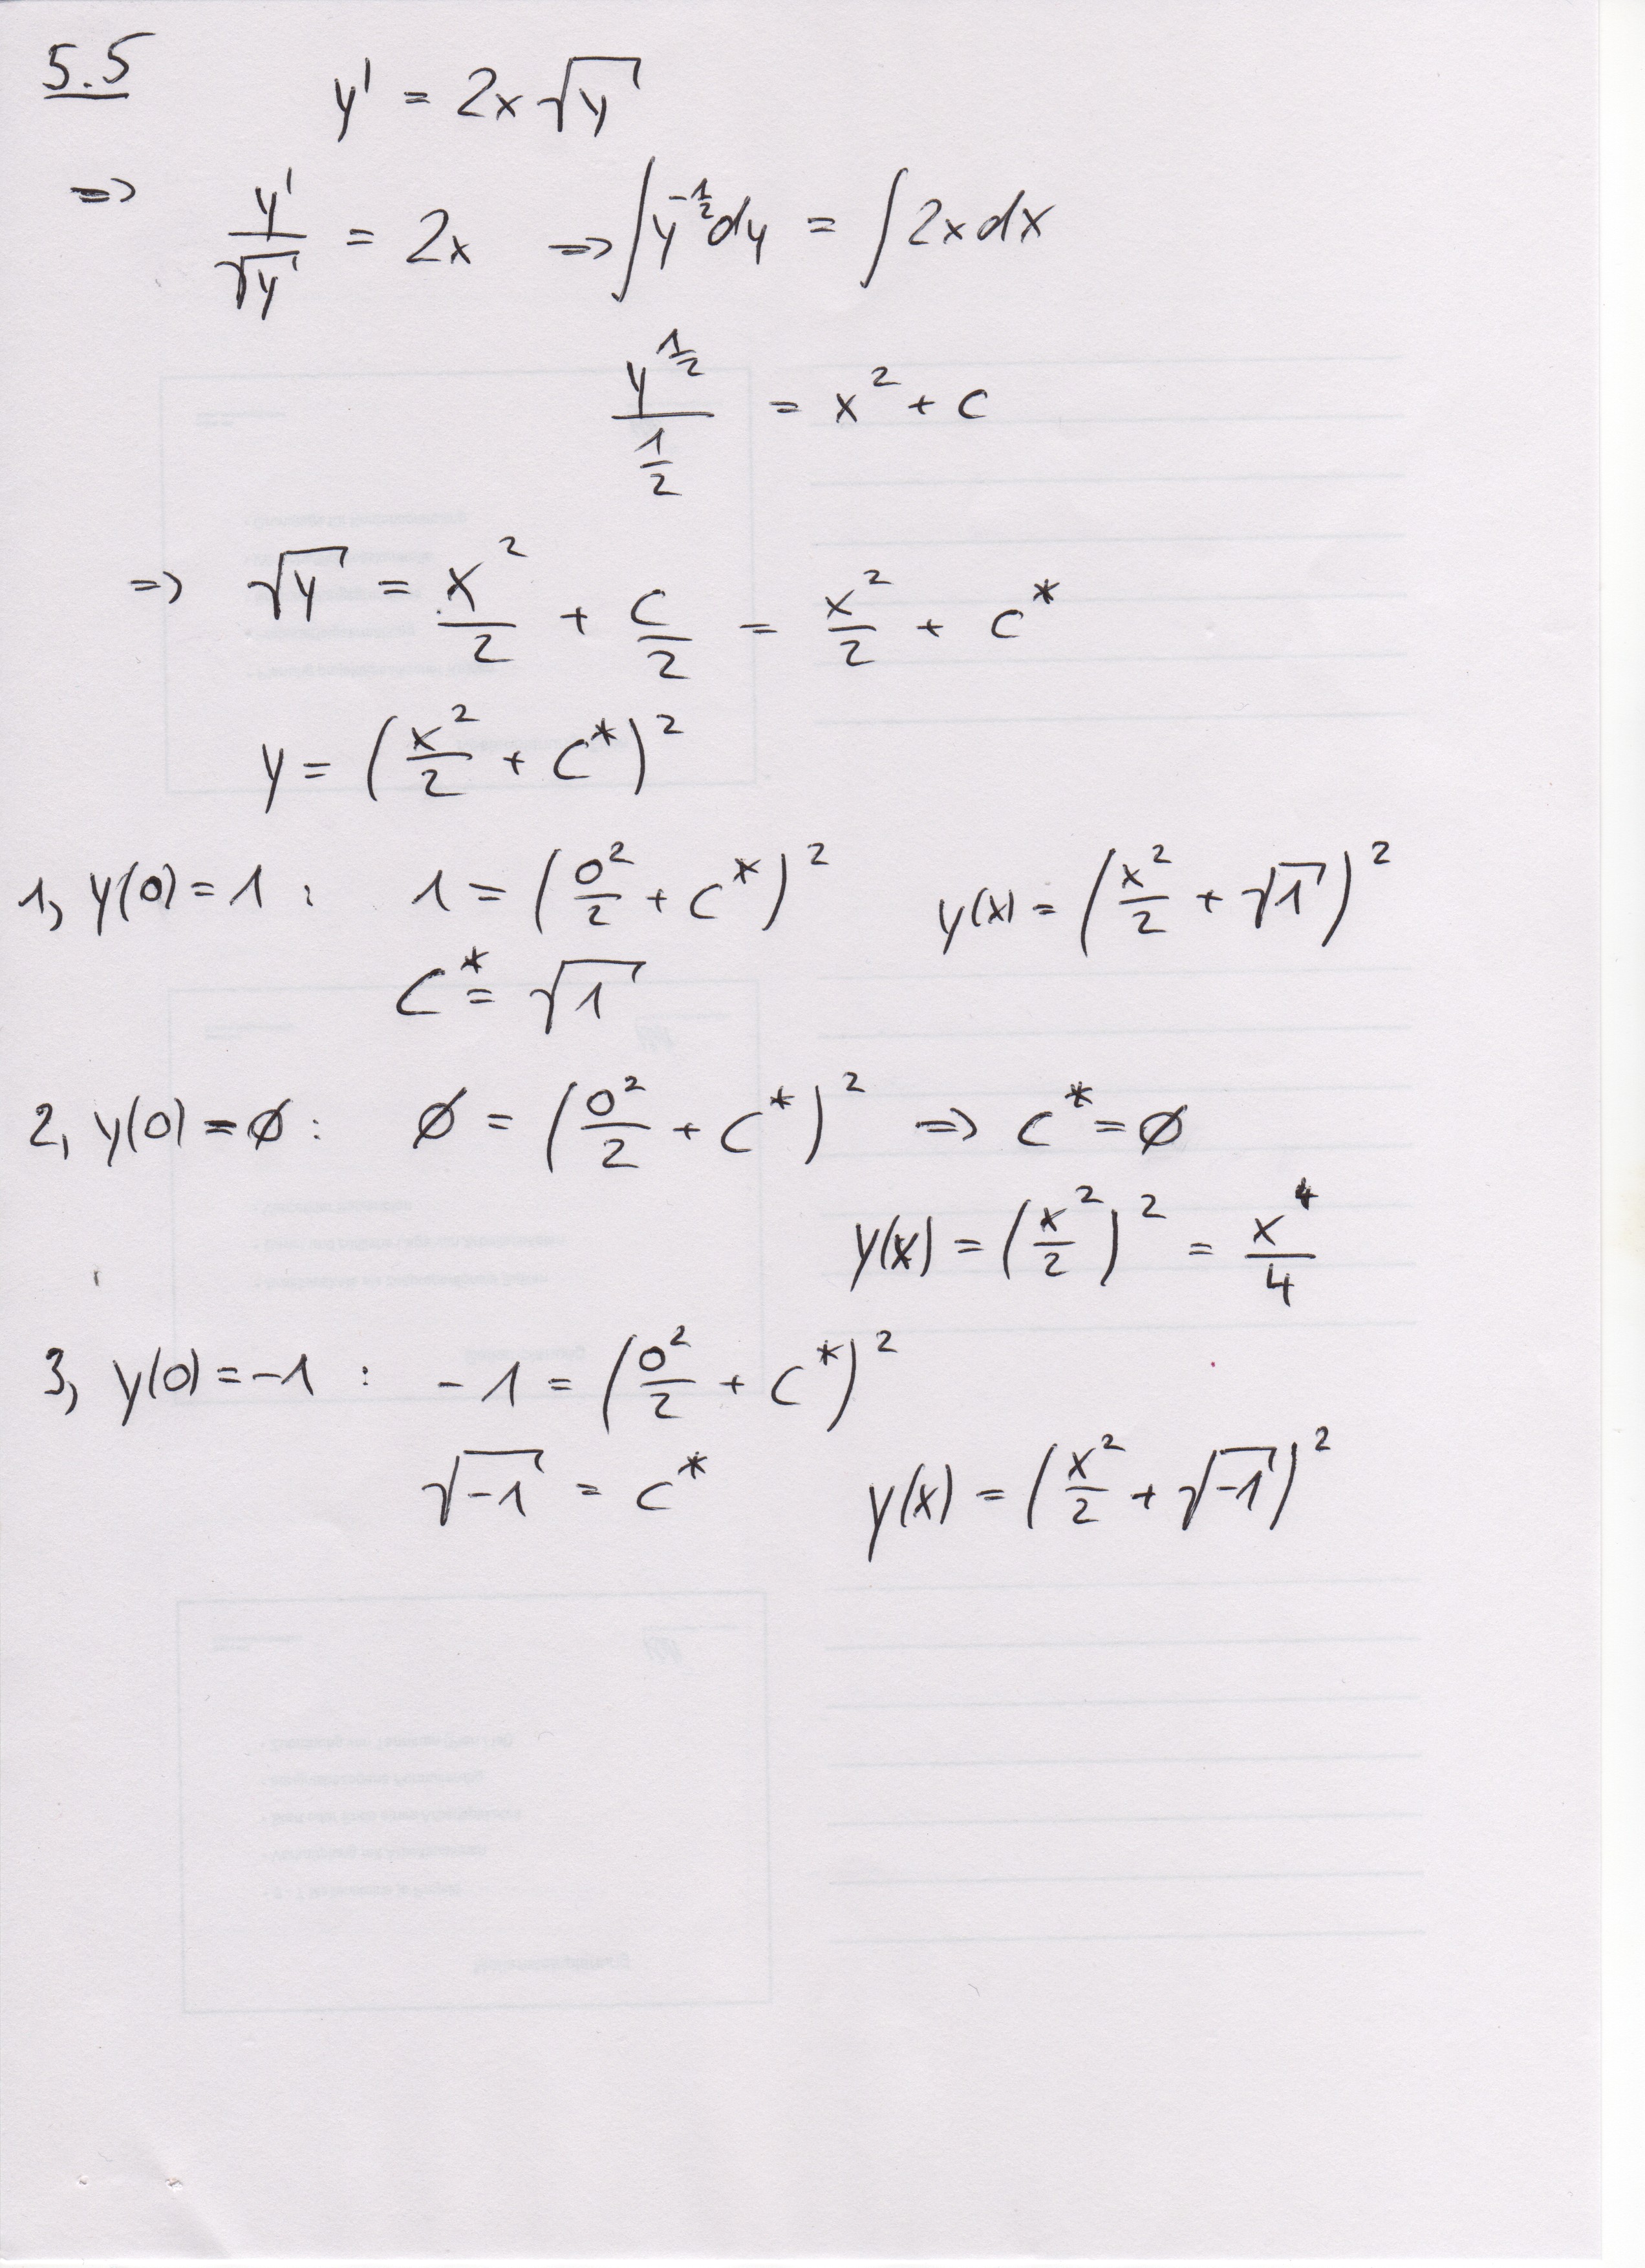 5.5
y' = 2x √y
=> y'/√y = 2x => ∫ y^(-1/2) dy = ∫ 2x dx
y^(1/2) / (1/2) = x² + c
=> √y = x²/2 + c/2 = x²/2 + c*
y = (x²/2 + c*)²
1, y(0) = 1 : 1 = (0²/2 + c*)² y(x) = (x²/2 + √1)²
c* = √1
2, y(0) = ∅ : ∅ = (0²/2 + c*)² => c* = ∅
y(x) = (x²/2)² = x⁴/4
3, y(0) = -1 : -1 = (0²/2 + c*)²
√-1 = c* y(x) = (x²/2 + √-1)²